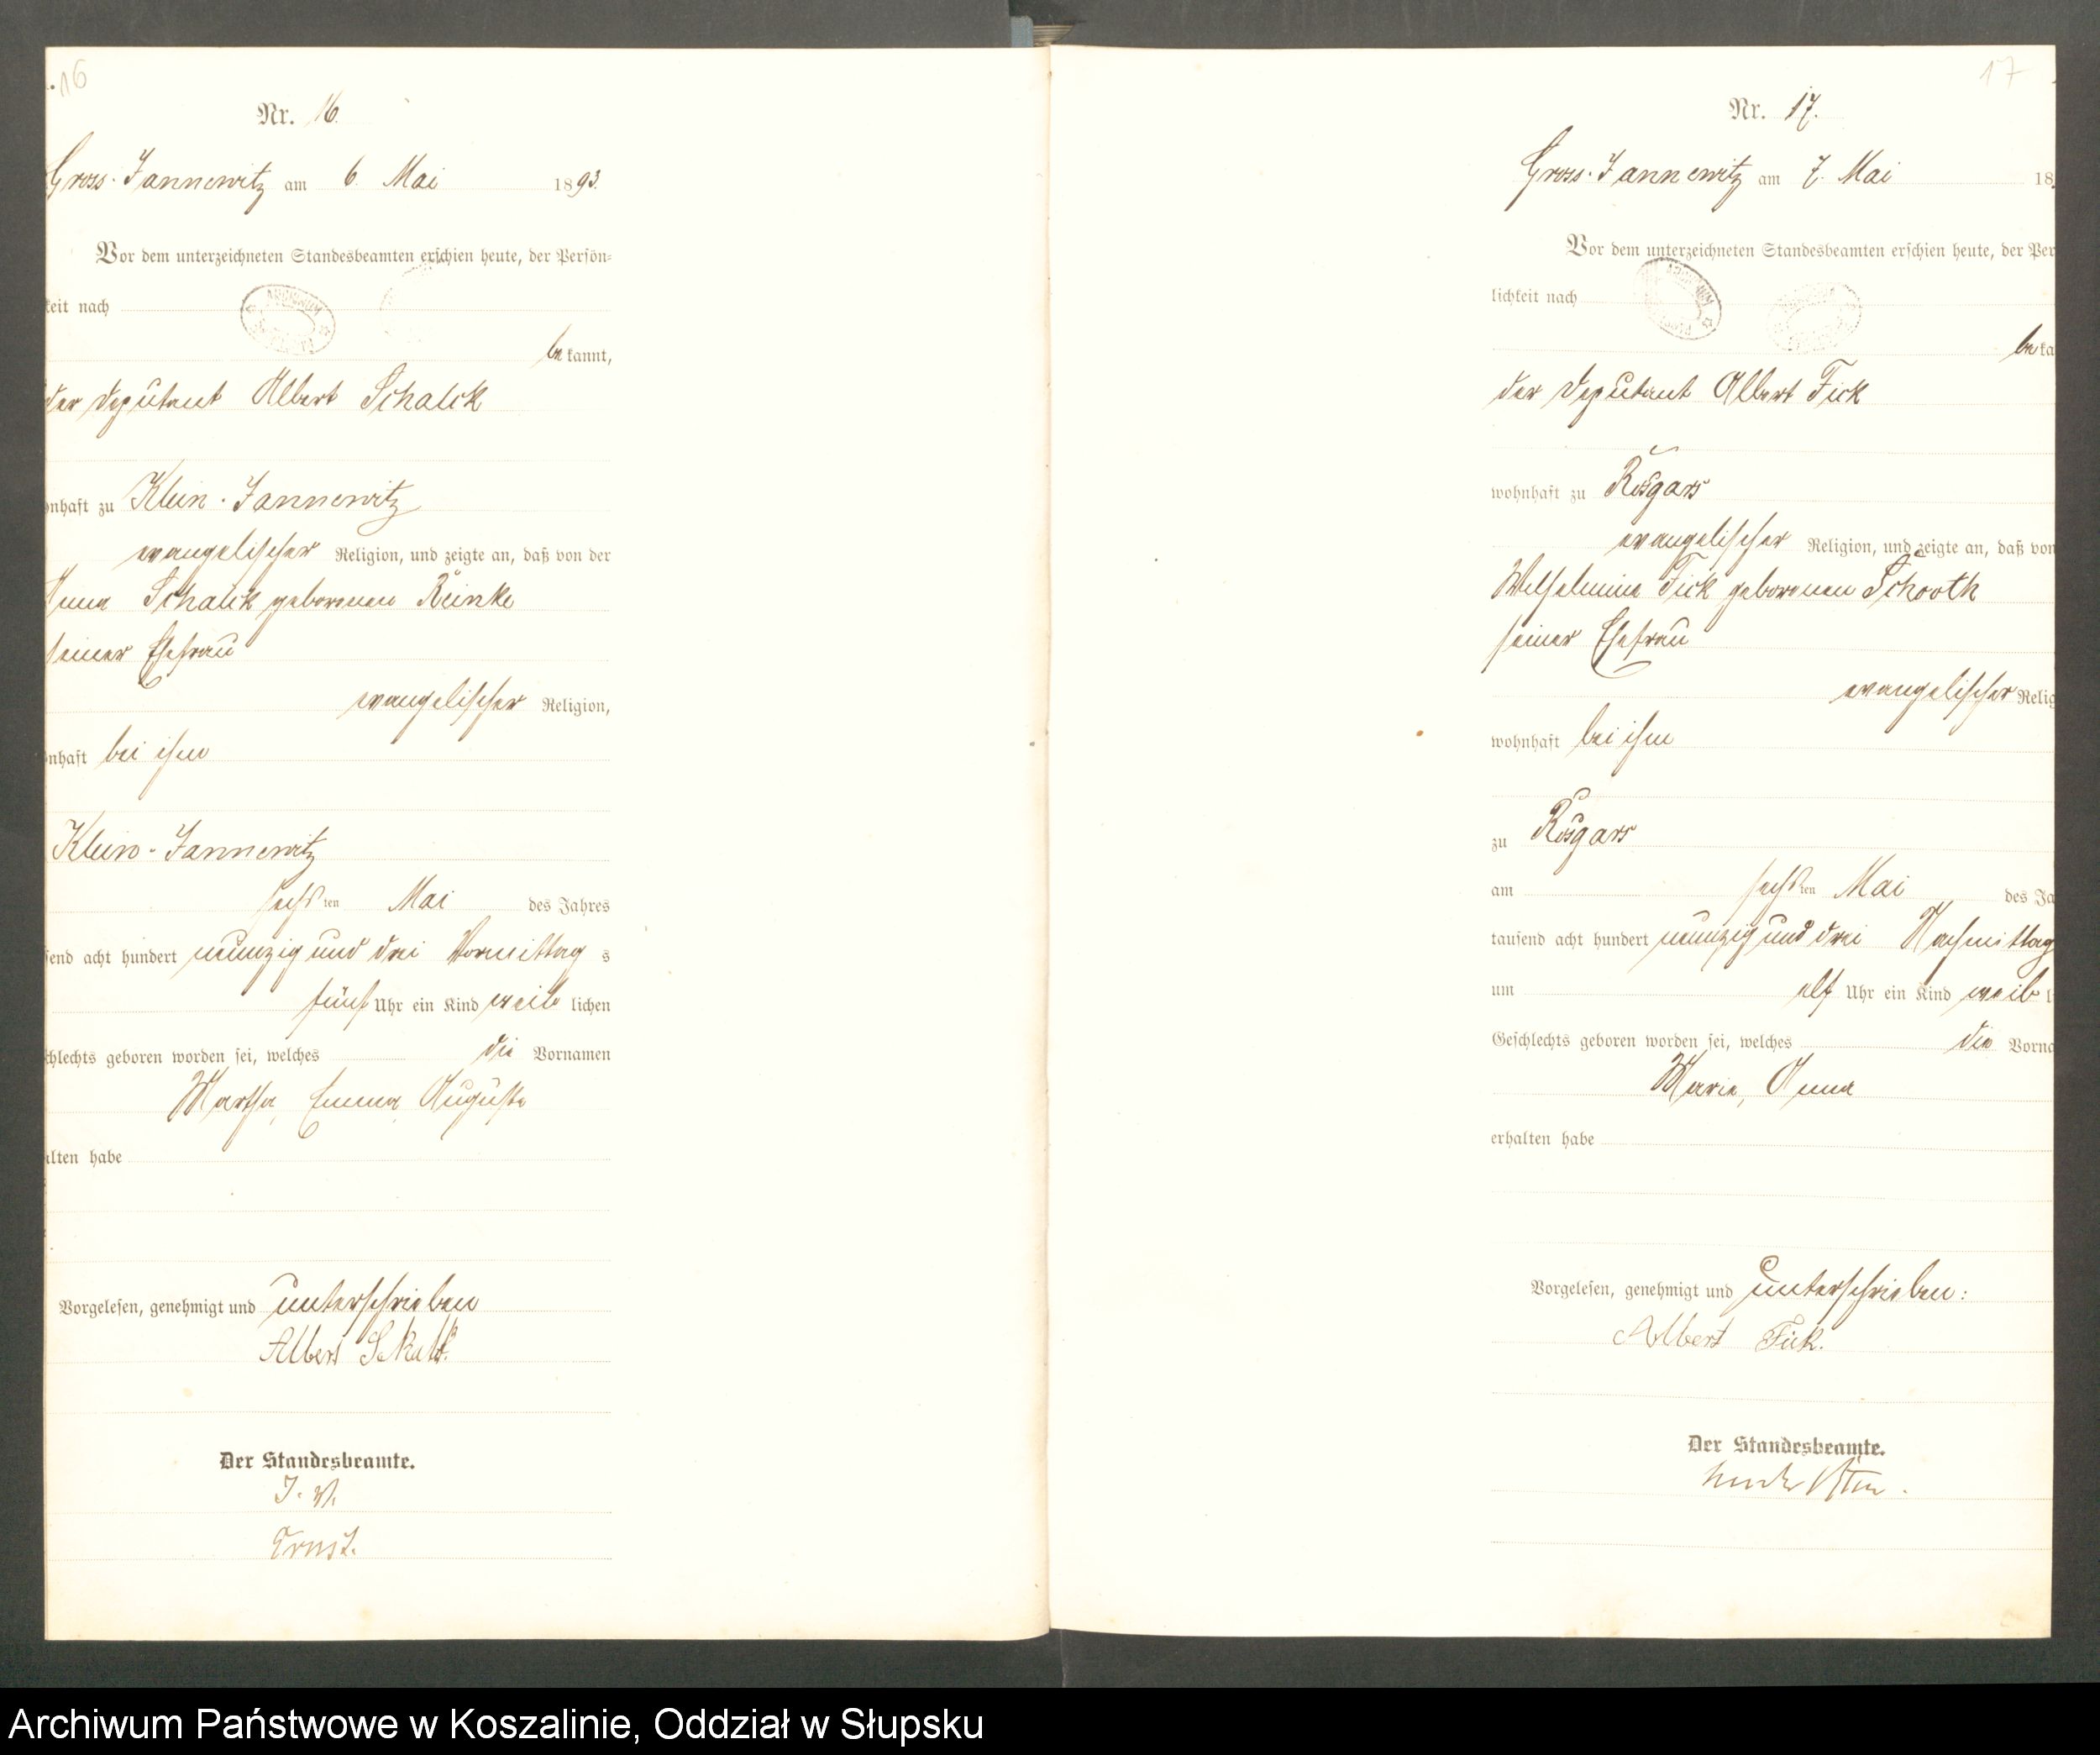 16
Nr. 16.
Gross-Jannewitz am 6. Mai 1893.
Vor dem unterzeichneten Standesbeamten erschien heute, der Persön-
keit nach
be kannt,
der Deputant Albert Schalck
nhaft zu Klein-Jannewitz
evangelischer Religion, und zeigte an, daß von der
Anna Schalck geborenen Reinke
seiner Ehefrau
evangelischer Religion,
nhaft bei ihm
Klein-Jannewitz
sechsten Mai des Jahres
send acht hundert neunzig und drei Vormittag s
fünf Uhr ein Kind weib lichen
chlechts geboren worden sei, welches die Vornamen
Martha, Emma, Auguste
lten habe
Vorgelesen, genehmigt und unterschrieben
Albert Schalk.
Der Standesbeamte.
J. V.
Ernst.
17
Nr. 17.
Gross-Jannewitz am 7. Mai 18
Vor dem unterzeichneten Standesbeamten erschien heute, der Per
lichkeit nach
be ka
der Deputant Albert Fick
wohnhaft zu Rosgars
evangelischer Religion, und zeigte an, daß von
Wilhelmine Fick geborenen Schooth
seiner Ehefrau
evangelischer Relig
wohnhaft bei ihm
zu Rosgars
am sechsten Mai des Ja
tausend acht hundert neunzig und drei Nachmittag
um elf Uhr ein Kind weib l
Geschlechts geboren worden sei, welches die Vorna
Marie, Anna
erhalten habe
Vorgelesen, genehmigt und unterschrieben:
Albert Fick.
Der Standesbeamte.
Archiwum Państwowe w Koszalinie, Oddział w Słupsku